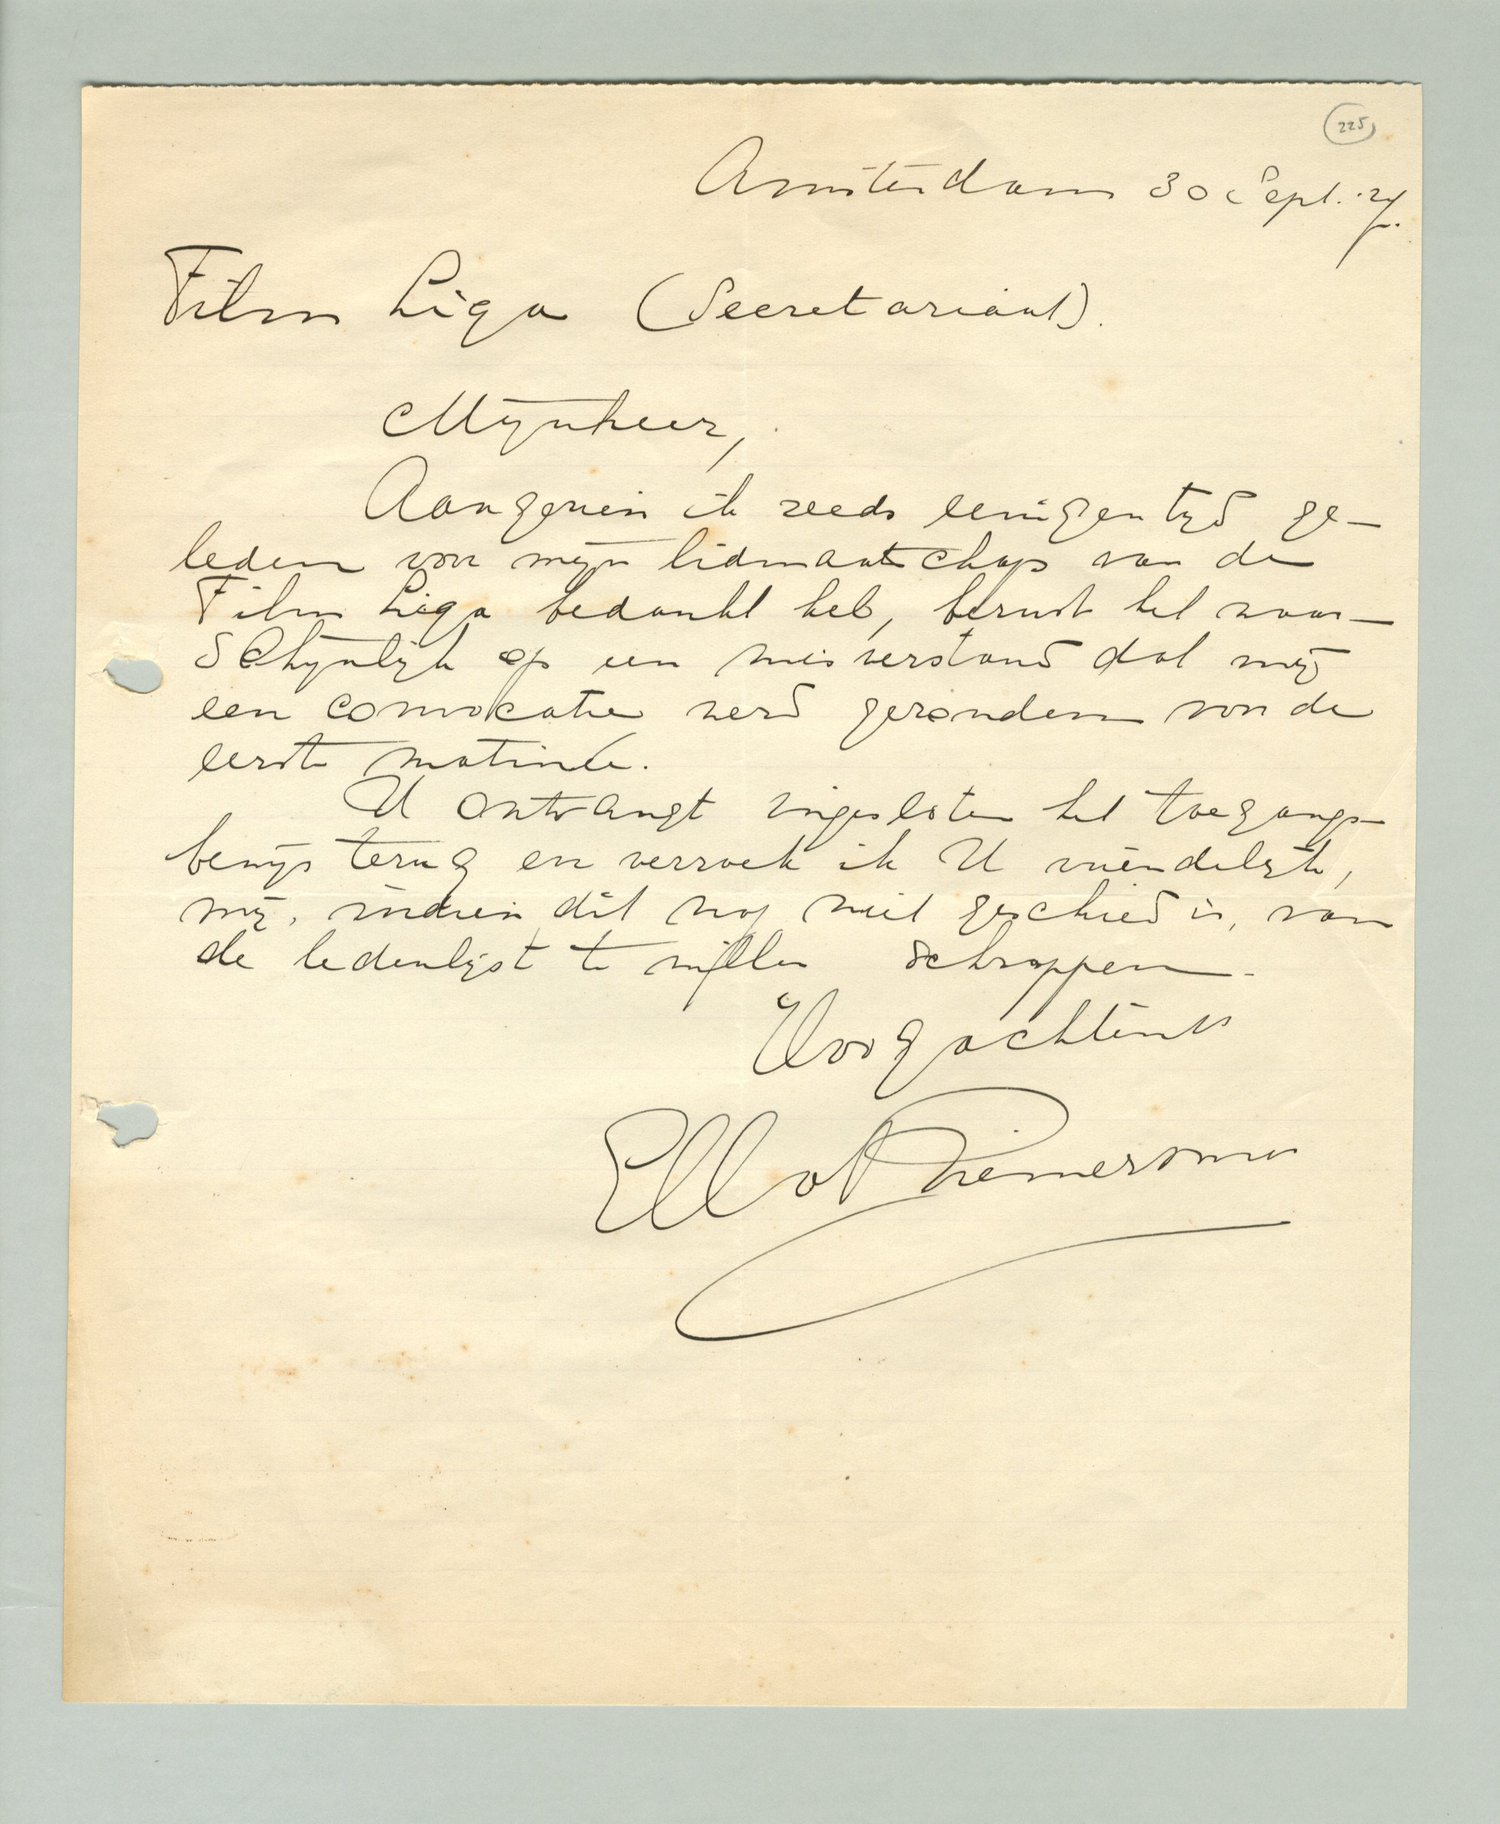 225
Amsterdam 30 Sept. 27.
Film Liga (Secretariaat).
Mijnheer,
Aangezien ik reeds eenigen tijd ge-
leden voor mijn lidmaatschap van de
Film Liga bedankt heb, berust het waar-
schijnlijk op een misverstand dat mij
een convocatie werd gezonden voor de
eerste matinée.
U ontvangt ingesloten het toegangs-
bewijs terug en verzoek ik U vriendelijk,
mij, indien dit nog niet geschied is, van
de ledenlijst te willen schrappen.
Hoogachtend
Ella Riemersma